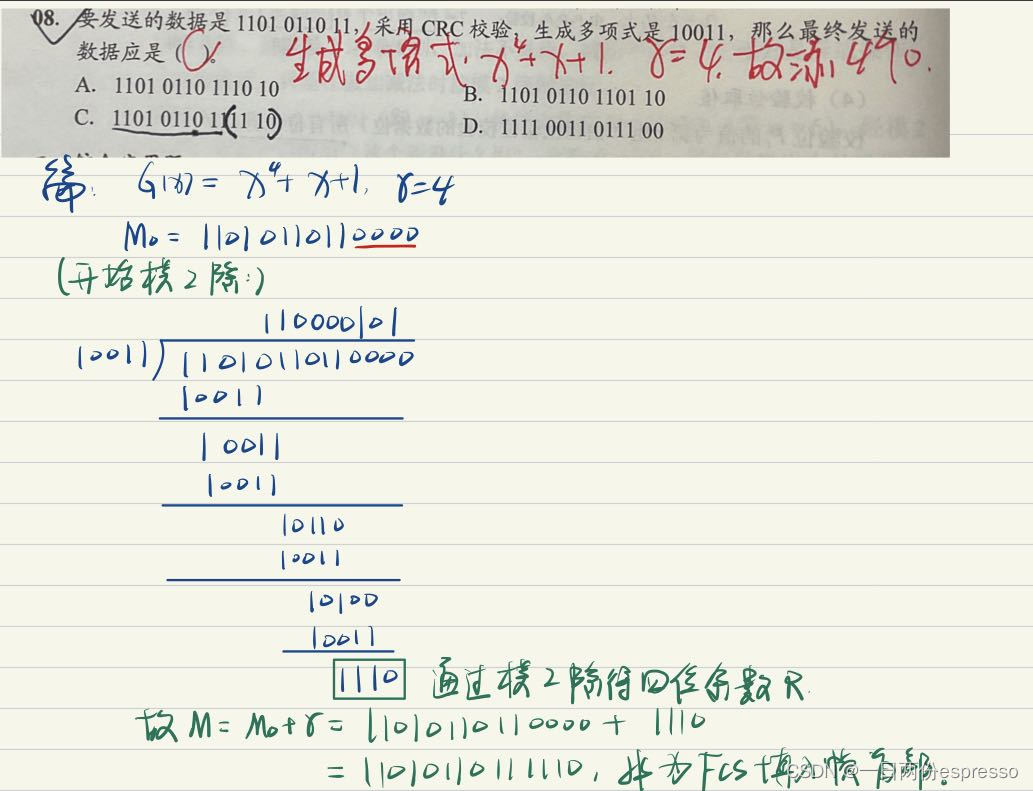 08. 要发送的数据是 1101 0110 11,采用 CRC 校验,生成多项式是 10011,那么最终发送的
数据应是( C )。 生成多项式. x⁴+x+1. r=4. 故添4个0.
A. 1101 0110 1110 10 B. 1101 0110 1101 10
C. 1101 0110 1111 10 D. 1111 0011 0111 00
解: G(x) = x⁴+x+1, r=4
M₀ = 11010110110000
(开始模2除:)
110000101
10011) 11010110110000
10011
10011
10011
10110
10011
10100
10011
1110 通过模2除得四位余数R.
故 M = M₀+r = 11010110110000 + 1110
= 11010110111110,
CSDN @一日两份espresso